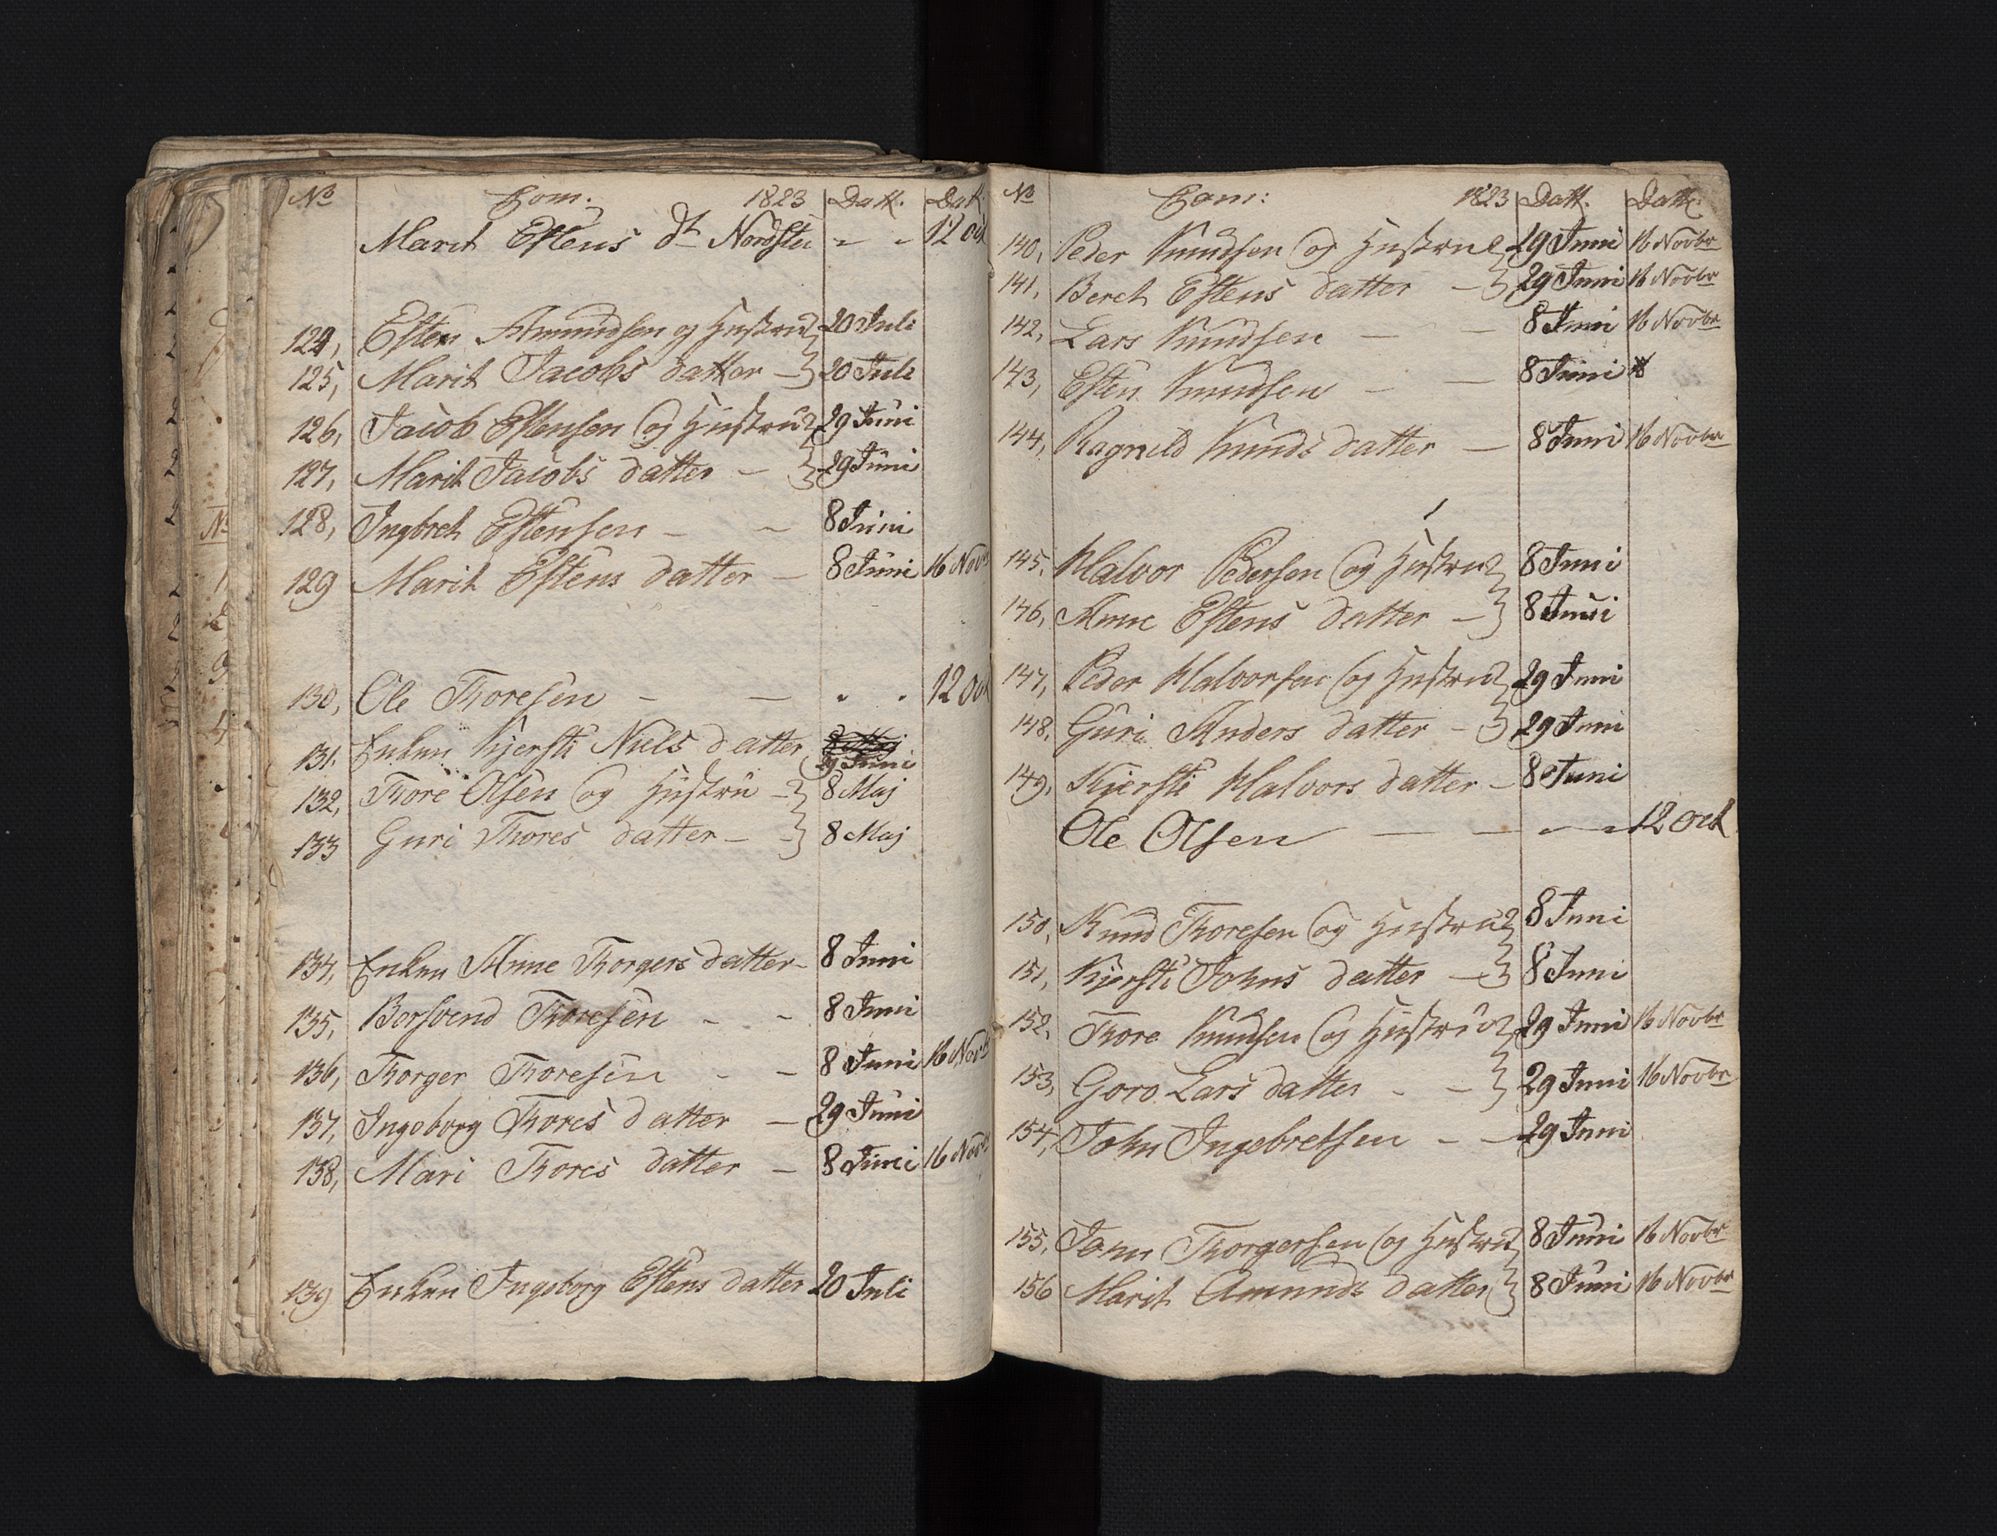 No Com. 1823 Datt. Dat.
Marit Estens Dt Nordstu - - 12 Oct
124, Esten Amundsen og Hustru 20 Juli
125, Marit Jacobs datter - 20 Juli
126, Jacob Estensen og Hustru 29 Juni
127, Marit Jacobs datter - 29 Juni
128, Ingbret Estensen - - 8 Juni
129 Marit Estens datter - 8 Juni 16 Nov
130, Ole Thoresen - - - - 12 Oct
131. Enken Kjersti Niels datter 29 Juni
132, Thore Olsen og Hustru - 8 Maj
133 Guri Thores datter - - 8 Maj
134, Enken Anne Thorgers datter - 8 Juni
135, Borsvend Thoresen - - 8 Juni
136, Thorger Thoresen - - 8 Juni 16 Novb
137, Ingeborg Thores datter - 29 Juni
138, Mari Thores datter - 8 Juni 16 Novb
139 Enken Ingeborg Estens datter 20 Juli
No Com: 1823 Datt. Datt.
140, Peder Knudsen og Hustrue 29 Juni 16 Novbr
141, Beret Estens datter - 29 Juni 16 Novbr
142, Lars Knudsen - - 8 Juni 16 Novbr
143, Esten Knudsen - - 8 Juni
144, Ragnild Knuds datter - 8 Juni 16 Novbr
145, Halvor Pedersen og Hustru 8 Juni
146, Anne Estens datter - 8 Juni
147, Peder Halvorsen og Hustru 29 Juni
148, Guri Anders datter - 29 Juni
149, Kjersti Halvors datter - 8 Juni
Ole Olsen - - - - 12 Oct
150, Knud Thoresen og Hustru 8 Juni
151, Kjersti Johns datter - 8 Juni
152, Thore Knudsen og Hustru 29 Juni 16 Novbr
153, Goro Lars datter - - 29 Juni 16 Novbr
154, John Ingebretsen - - 29 Juni
155, John Thorgersen og Hustru 8 Juni 16 Novbr
156 Marit Amunds datter 8 Juni 16 Novbr